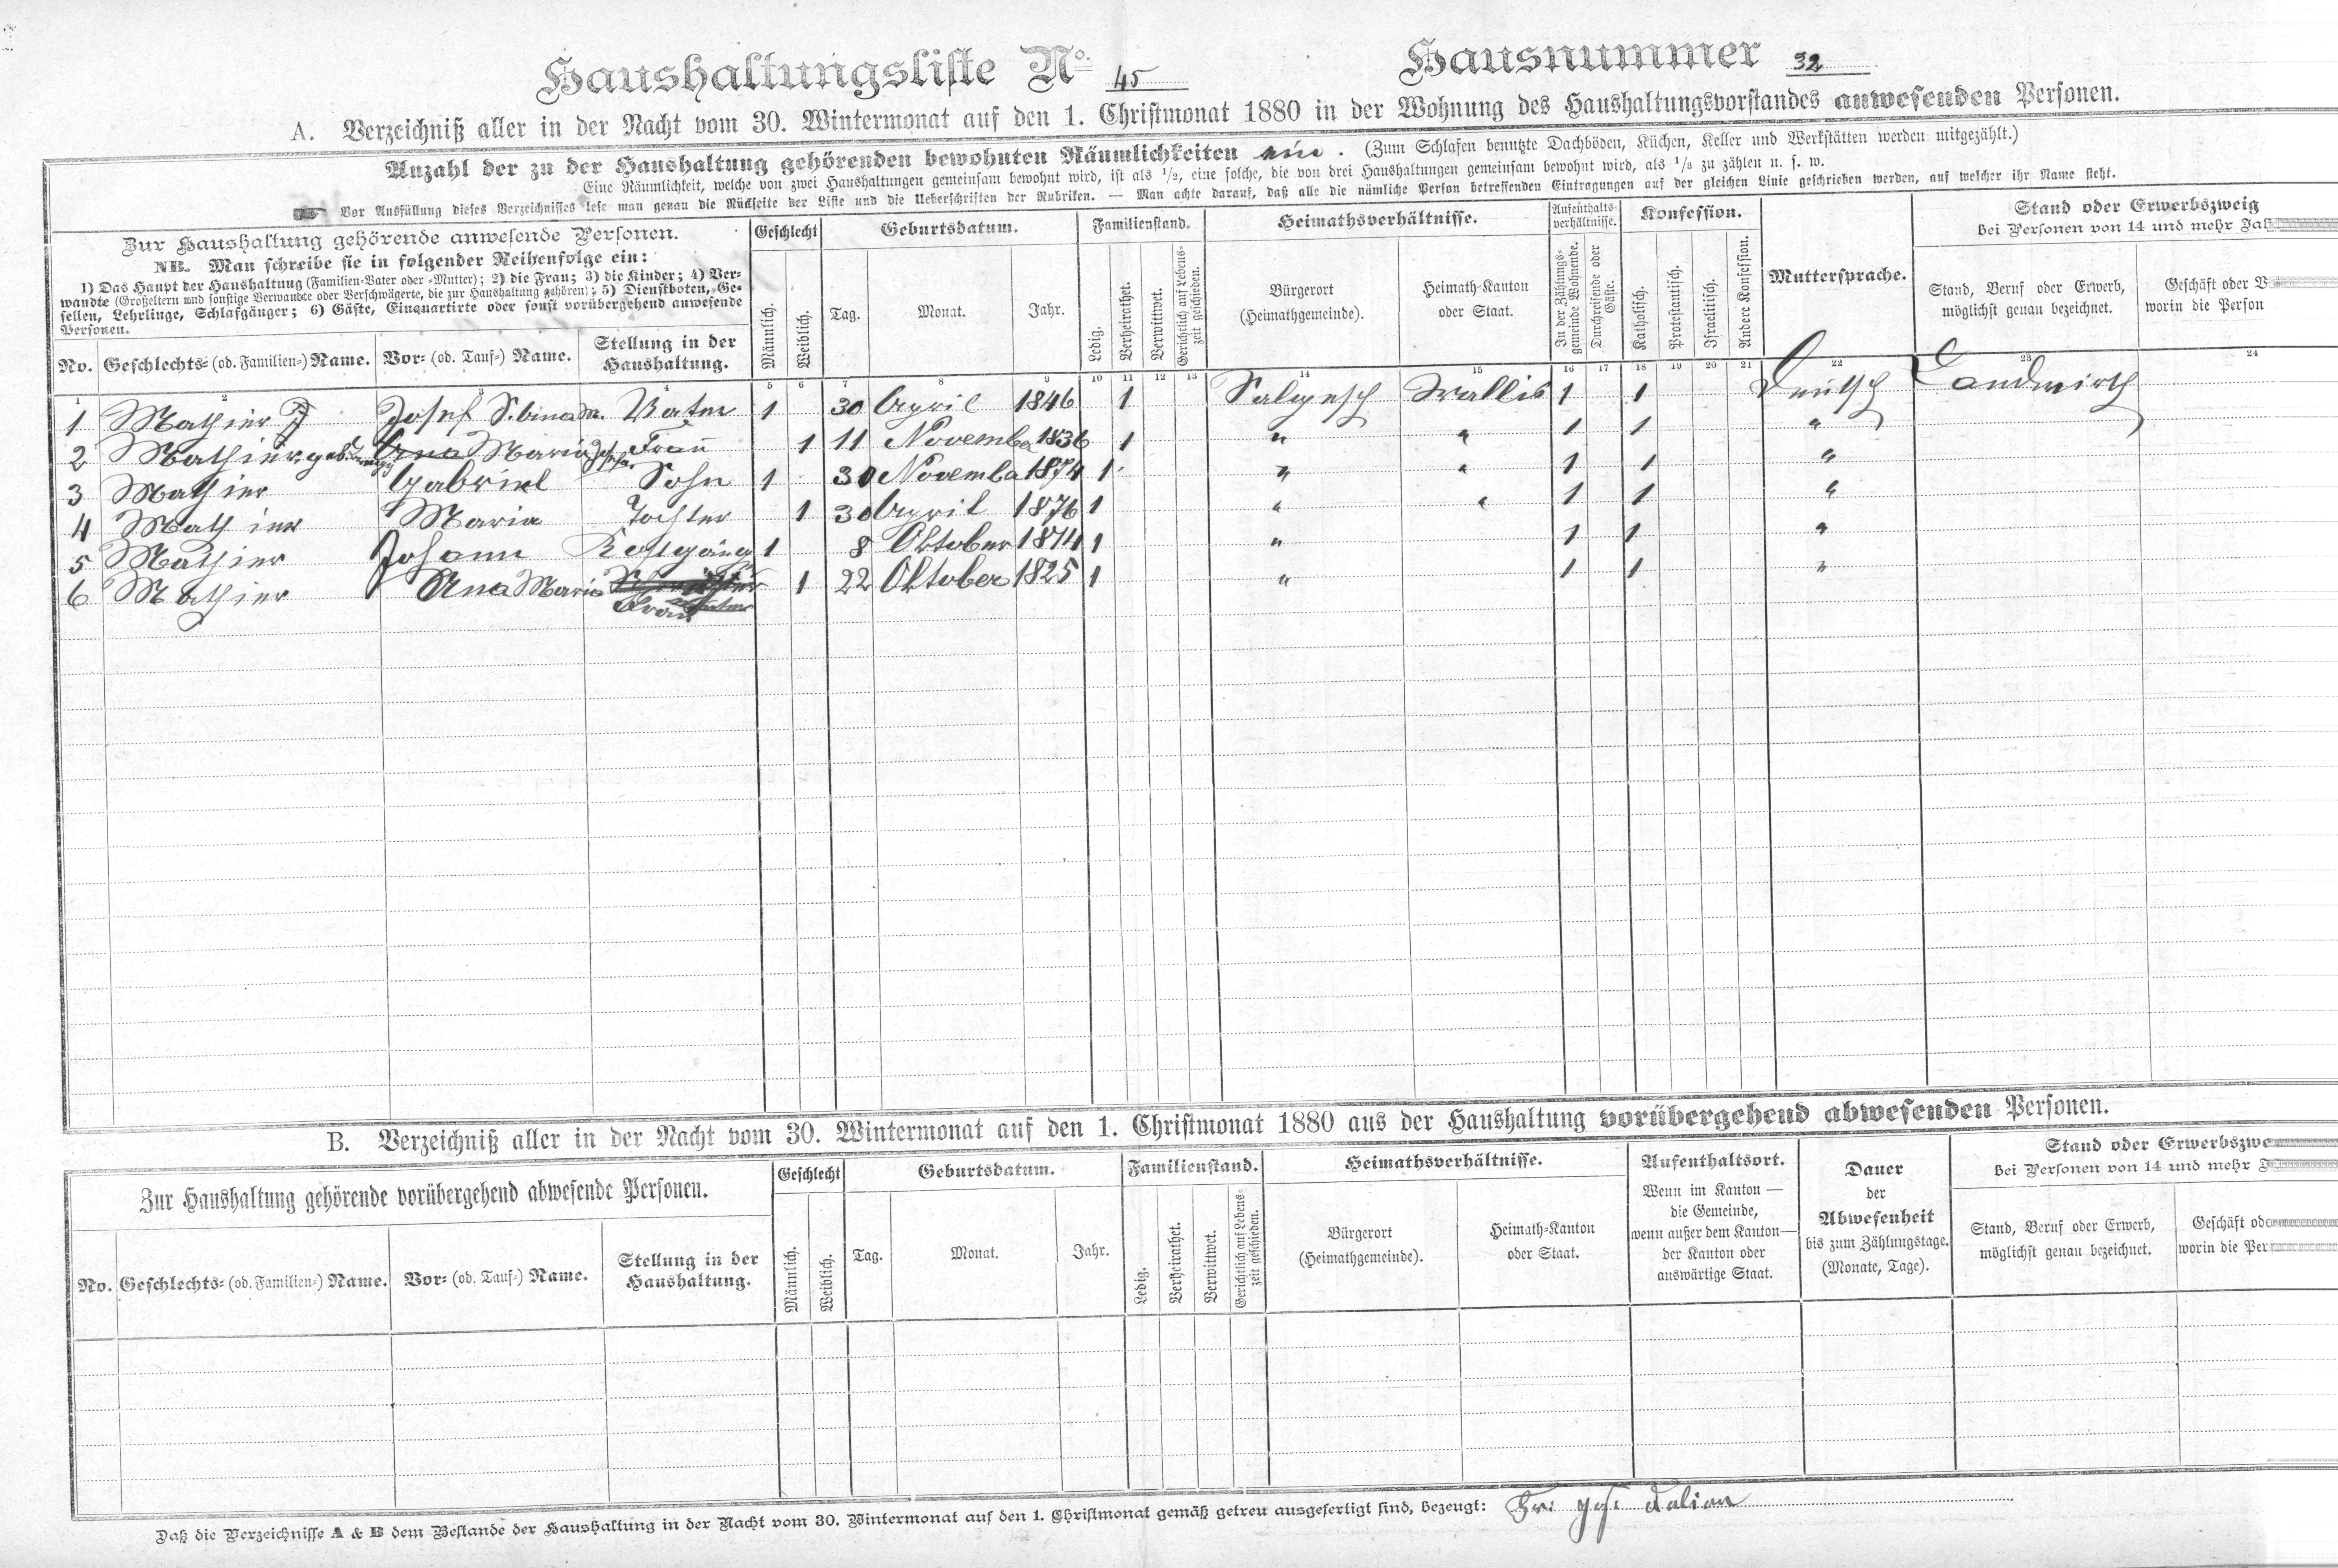 Haushaltungsliste No. 45 Hausnummer 32
A. Verzeichniß aller in der Nacht vom 30. Wintermonat auf den 1. Christmonat 1880 in der Wohnung des Haushaltungsvorstandes anwesenden Personen.
Anzahl der zu der Haushaltung gehörenden bewohnten Räumlichkeiten ein. (Zum Schlafen benutzte Dachböden, Küchen, Keller und Werkstätten werden mitgezählt.)
Eine Räumlichkeit, welche von zwei Haushaltungen gemeinsam bewohnt wird, ist als 1/2, eine solche, die von drei Haushaltungen gemeinsam bewohnt wird, als 1/3 zu zählen u. s. w.
Vor Ausfüllung dieses Verzeichnisses lese man genau die Rückseite der Liste und die Ueberschriften der Rubriken. — Man achte darauf, daß alle die nämliche Person betreffenden Eintragungen auf der gleichen Linie geschrieben werden, auf welcher ihr Name steht.
Zur Haushaltung gehörende anwesende Personen.
NB. Man schreibe sie in folgender Reihenfolge ein:
1) Das Haupt der Haushaltung (Familien-Vater oder -Mutter); 2) die Frau; 3) die Kinder; 4) Ver-
wandte (Großeltern und sonstige Verwandte oder Verschwägerte, die zur Haushaltung gehören); 5) Dienstboten, Ge-
sellen, Lehrlinge, Schlafgänger; 6) Gäste, Einquartirte oder sonst vorübergehend anwesende
Personen.
No. Geschlechts- (od. Familien-) Name. Vor- (od. Tauf-) Name. Stellung in der Haushaltung.
Geschlecht
Männlich. Weiblich.
Geburtsdatum.
Tag. Monat. Jahr.
Familienstand.
Ledig. Verheirathet. Verwittwet. Gerichtlich auf Lebens-
zeit geschieden.
Heimathsverhältnisse.
Bürgerort
(Heimathgemeinde).
Heimath-Kanton
oder Staat.
Aufenthalts-
verhältnisse.
In der Zählungs-
gemeinde Wohnende.
Durchreisende oder
Gäste.
Konfession.
Katholisch. Protestantisch. Israelitisch. Andere Konfession.
Muttersprache.
Stand oder Erwerbszweig
bei Personen von 14 und mehr
Stand, Beruf oder Erwerb,
möglichst genau bezeichnet.
Geschäft oder
worin die Person
1 2 3 4 5 6 7 8 9 10 11 12 13 14 15 16 17 18 19 20 21 22 23 24
1 Mathier Josef Vater 1 30 April 1846 1 Salgesch Wallis 1 1 Deutsch Landwirth
2 Mathier geb. Ana Maria Frau 1 11 November 1836 1 " " 1 1 "
3 Mathier Gabriel Sohn 1 30 November 1874 1 " " 1 1 "
4 Mathier Maria Tochter 1 30 April 1876 1 " " 1 1 "
5 Mathier Johann Kostgäng 1 8 Oktober 1874 1 " 1 1 "
6 Mathier Ana Maria 1 22 Oktober 1825 1 " 1 1 "
B. Verzeichniß aller in der Nacht vom 30. Wintermonat auf den 1. Christmonat 1880 aus der Haushaltung vorübergehend abwesenden Personen.
Zur Haushaltung gehörende vorübergehend abwesende Personen.
No. Geschlechts- (od. Familien-) Name. Vor- (od. Tauf-) Name. Stellung in der Haushaltung.
Geschlecht
Männlich. Weiblich.
Geburtsdatum.
Tag. Monat. Jahr.
Familienstand.
Ledig. Verheirathet. Verwittwet. Gerichtlich auf Lebens-
zeit geschieden.
Heimathsverhältnisse.
Bürgerort
(Heimathgemeinde).
Heimath-Kanton
oder Staat.
Aufenthaltsort.
Wenn im Kanton —
die Gemeinde,
wenn außer dem Kanton—
der Kanton oder
auswärtige Staat.
Dauer
der
Abwesenheit
bis zum Zählungstage.
(Monate, Tage).
Stand oder
bei Personen von 14 und mehr
Stand, Beruf oder Erwerb,
möglichst genau bezeichnet.
Geschäft
worin die
Daß die Verzeichnisse A & B dem Bestande der Haushaltung in der Nacht vom 30. Wintermonat auf den 1. Christmonat gemäß getreu ausgefertigt sind, bezeugt: